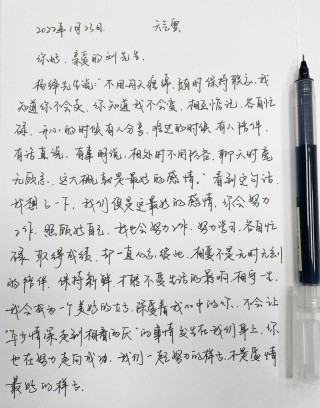 2022年1月23日 天气雪
你好，亲爱的刘先生。
杨绛先生说："不用每天缠绵，随时保持联系，我
知道你不会走，你知道我不会变，相互惦记，各自忙
碌，开心的时候有人分享，难过的时候有人陪伴，
有话直说，有事明说，相处时不用伪装，聊天时毫
无顾忌，这大概就是最好的感情。"看到这句话，
我想了一下，我们便是这最好的感情，你会努力
工作，照顾好自己，我也会努力工作，努力学习，各自忙
碌，取得成绩，却一直心系彼此，相爱不是无时无刻
的陪伴，保持新鲜，才能不受生活的影响相守一生，
我会成为一个美好的女子，深爱着我心中的你，不会让
"年少情深走到相看两厌"的事情发生在我们身上，你
也在努力走向成功，我们一起努力的样子，不是爱情
最好的样子。